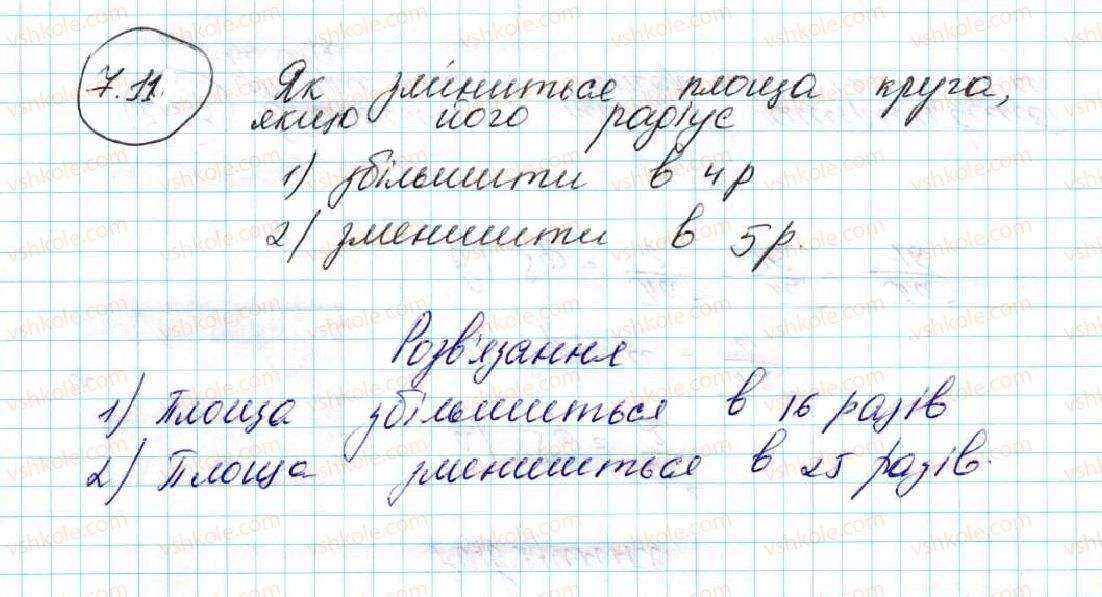 7.11.
Як зміниться площа круга,
якщо його радіус
1) збільшити в 4 р
2) зменшити в 5 р.
Розв'язання
1) Площа збільшиться в 16 разів
2) Площа зменшиться в 25 разів.